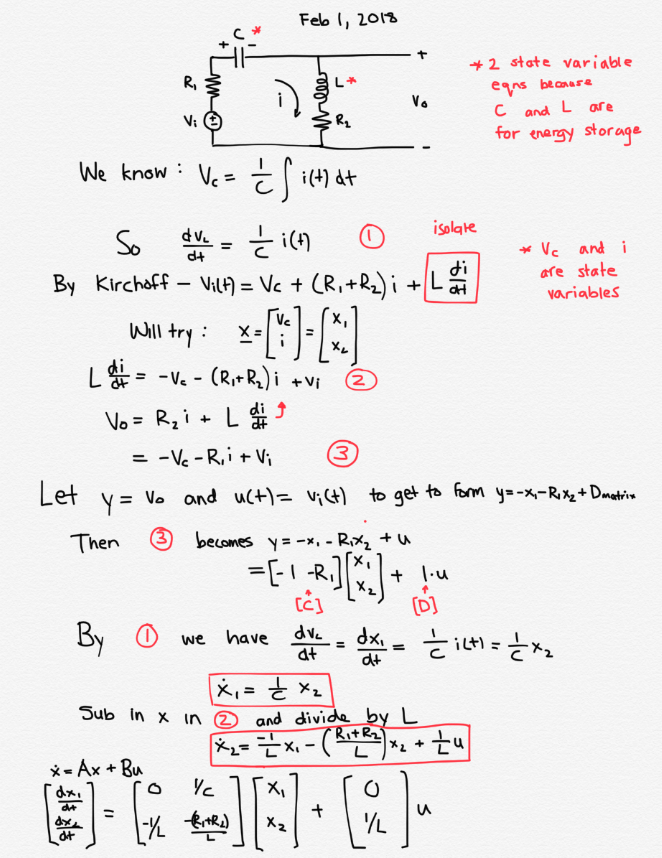 Feb 1, 2018
C *
+ -
+
R₁
L *
i
Vo
Vi
R₂
-
* 2 state variable
eqns because
C and L are
for energy storage
We know : Vc = 1/C ∫ i(t) dt
isolate
So dVc/dt = 1/C i(t) ①
* Vc and i
are state
variables
By Kirchoff - Vi(t) = Vc + (R₁+R₂) i + L di/dt
Will try : x = [Vc i] = [x₁ x₂]
L di/dt = -Vc - (R₁+R₂) i + Vi ②
Vo = R₂ i + L di/dt
= -Vc - R₁ i + Vi ③
Let y = Vo and u(t) = Vi(t) to get to form y = -x₁ - R₁x₂ + Dmatrix
Then ③ becomes y = -x₁ - R₁x₂ + u
= [-1 -R₁] [x₁ x₂] + 1·u
[C] [D]
By ① we have dVc/dt = dx₁/dt = 1/C i(t) = 1/C x₂
ẋ₁ = 1/C x₂
Sub in x in ② and divide by L
ẋ₂ = -1/L x₁ - ((R₁+R₂)/L) x₂ + 1/L u
ẋ = Ax + Bu
[dx₁/dt dx₂/dt] = [0 1/C -1/L -(R₁+R₂)/L] [x₁ x₂] + [0 1/L] u